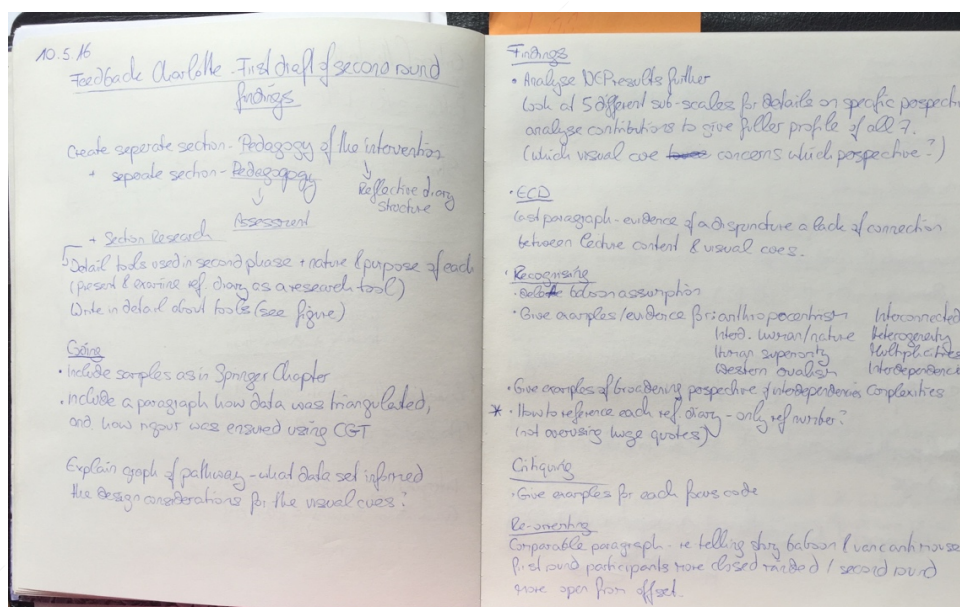 10.5.16
Feedback Charlotte - First draft of second round
findings
Create seperate section - Pedagogy of the intervention
+ seperate section - Pedagogogy
Reflective diary
structure
Assessment
+ Section Research
Detail tools used in second phase + nature & purpose of each
(present & examine ref. diary as a research tool)
Write in detail about tools (see figure)
Going
• Include samples as in Springer Chapter
• Include a paragraph how data was triangulated,
and how rigour was ensured using CGT
Explain graph of pathway - what data set informed
the design considerations for the visual cues?
Findings
• Analyse NEP results further
Look at 5 different sub-scales for details on specific perspecti
analyse contributions to give fuller profile of all 7.
(which visual cue concerns which perspective?)
• ECD
Last paragraph - evidence of a disjuncture a lack of connection
between lecture content & visual cues.
• Recognising
baboon assumption
• Give examples/evidence for: anthropocentrism Interconnected
Interd. human/nature Heterogeneity
Human superiority Multiplicities
Western dualism Interdependence
• Give examples of broadening perspective of interdependencies complexities
* • How to reference each ref diary - only ref number?
(not overusing huge quotes)
Critiquing
• Give examples for each focus code
Re-orienting
Comparable paragraph - re-telling story baboon & mouse
first round participants more closed minded / second round
more open from offset.